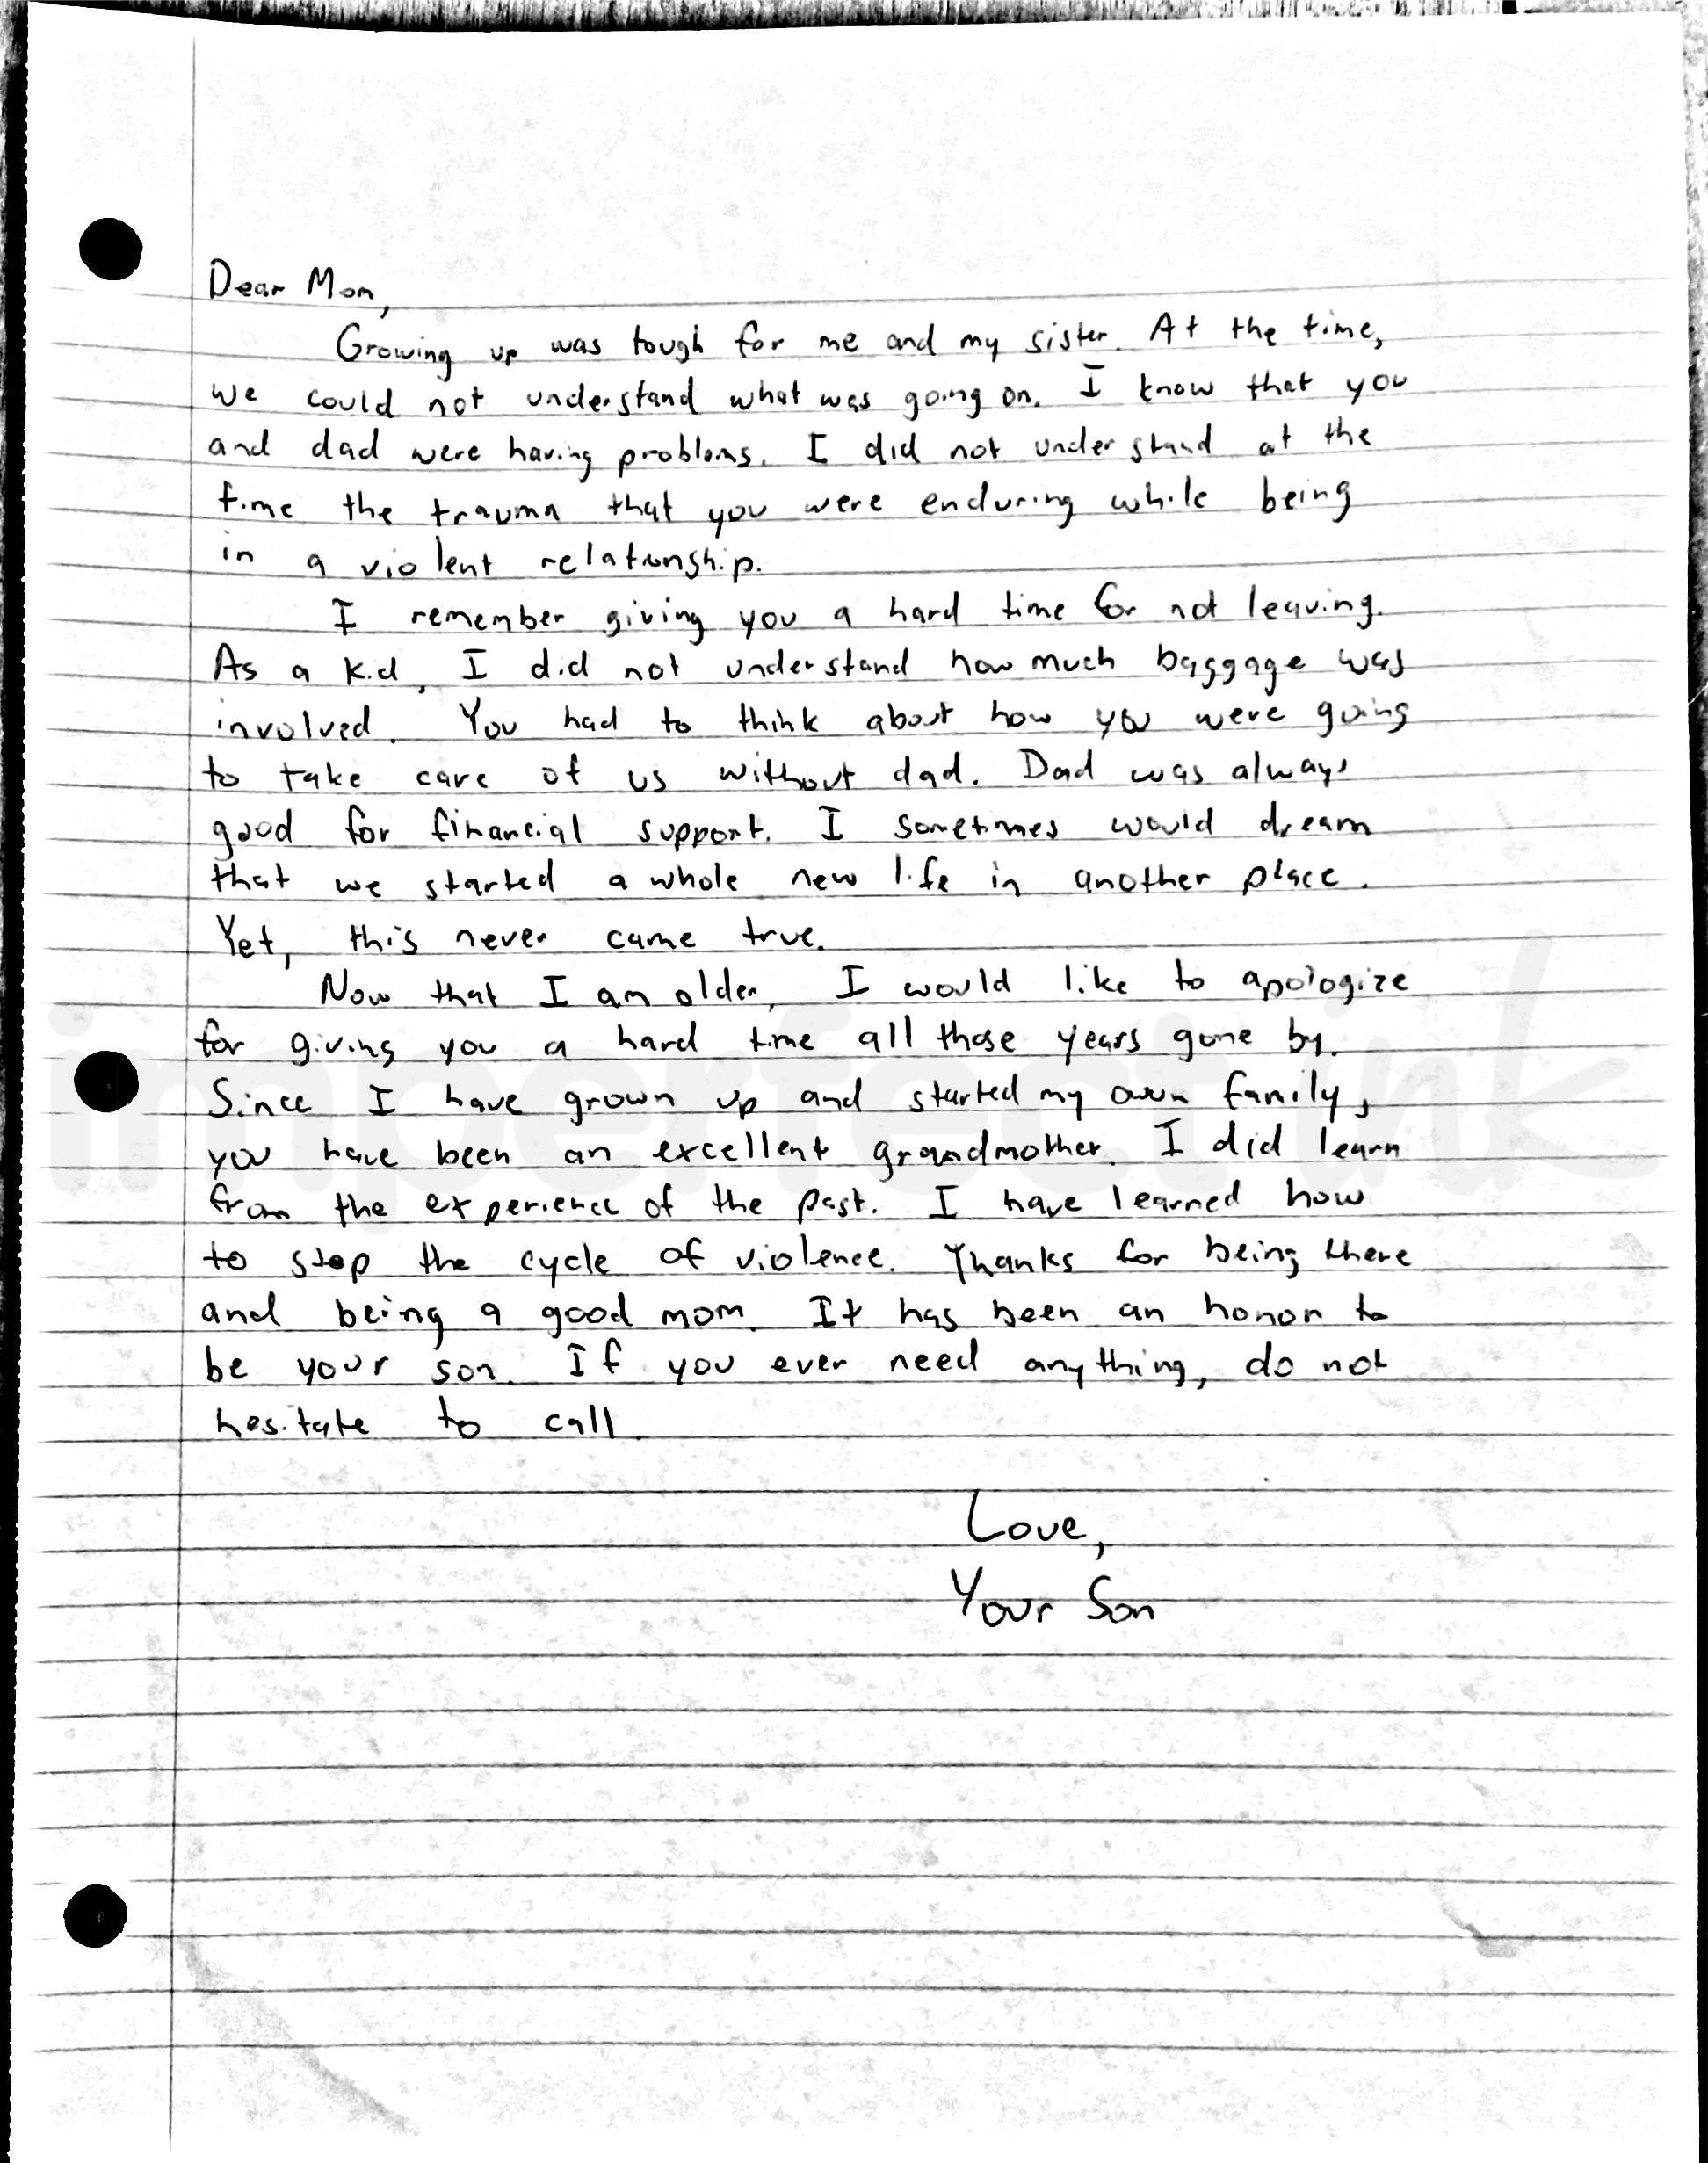 Dear Mom,
Growing up was tough for me and my sister. At the time,
we could not understand what was going on. I know that you
and dad were having problems. I did not understand at the
time the trauma that you were enduring while being
in a violent relationship.
I remember giving you a hard time for not leaving.
As a kid, I did not understand how much baggage was
involved. You had to think about how you were going
to take care of us without dad. Dad was always
good for financial support. I sometimes would dream
that we started a whole new life in another place.
Yet, this never came true.
Now that I am older, I would like to apologize
for giving you a hard time all those years gone by.
Since I have grown up and started my own family,
you have been an excellent grandmother. I did learn
from the experience of the past. I have learned how
to stop the cycle of violence. Thanks for being there
and being a good mom. It has been an honor to
be your son. If you ever need anything, do not
hesitate to call.
Love,
Your Son
imperfect ink